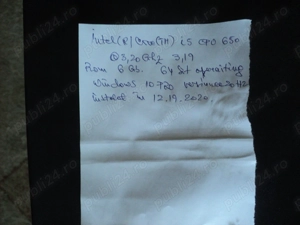 Intel(R) Core(TM) i5 CPU 650
@ 3,20 GHz 3,19
Ram 6 Gb. 64 bit operating
Windows 10 Pro 20H2
in 12.19.2020